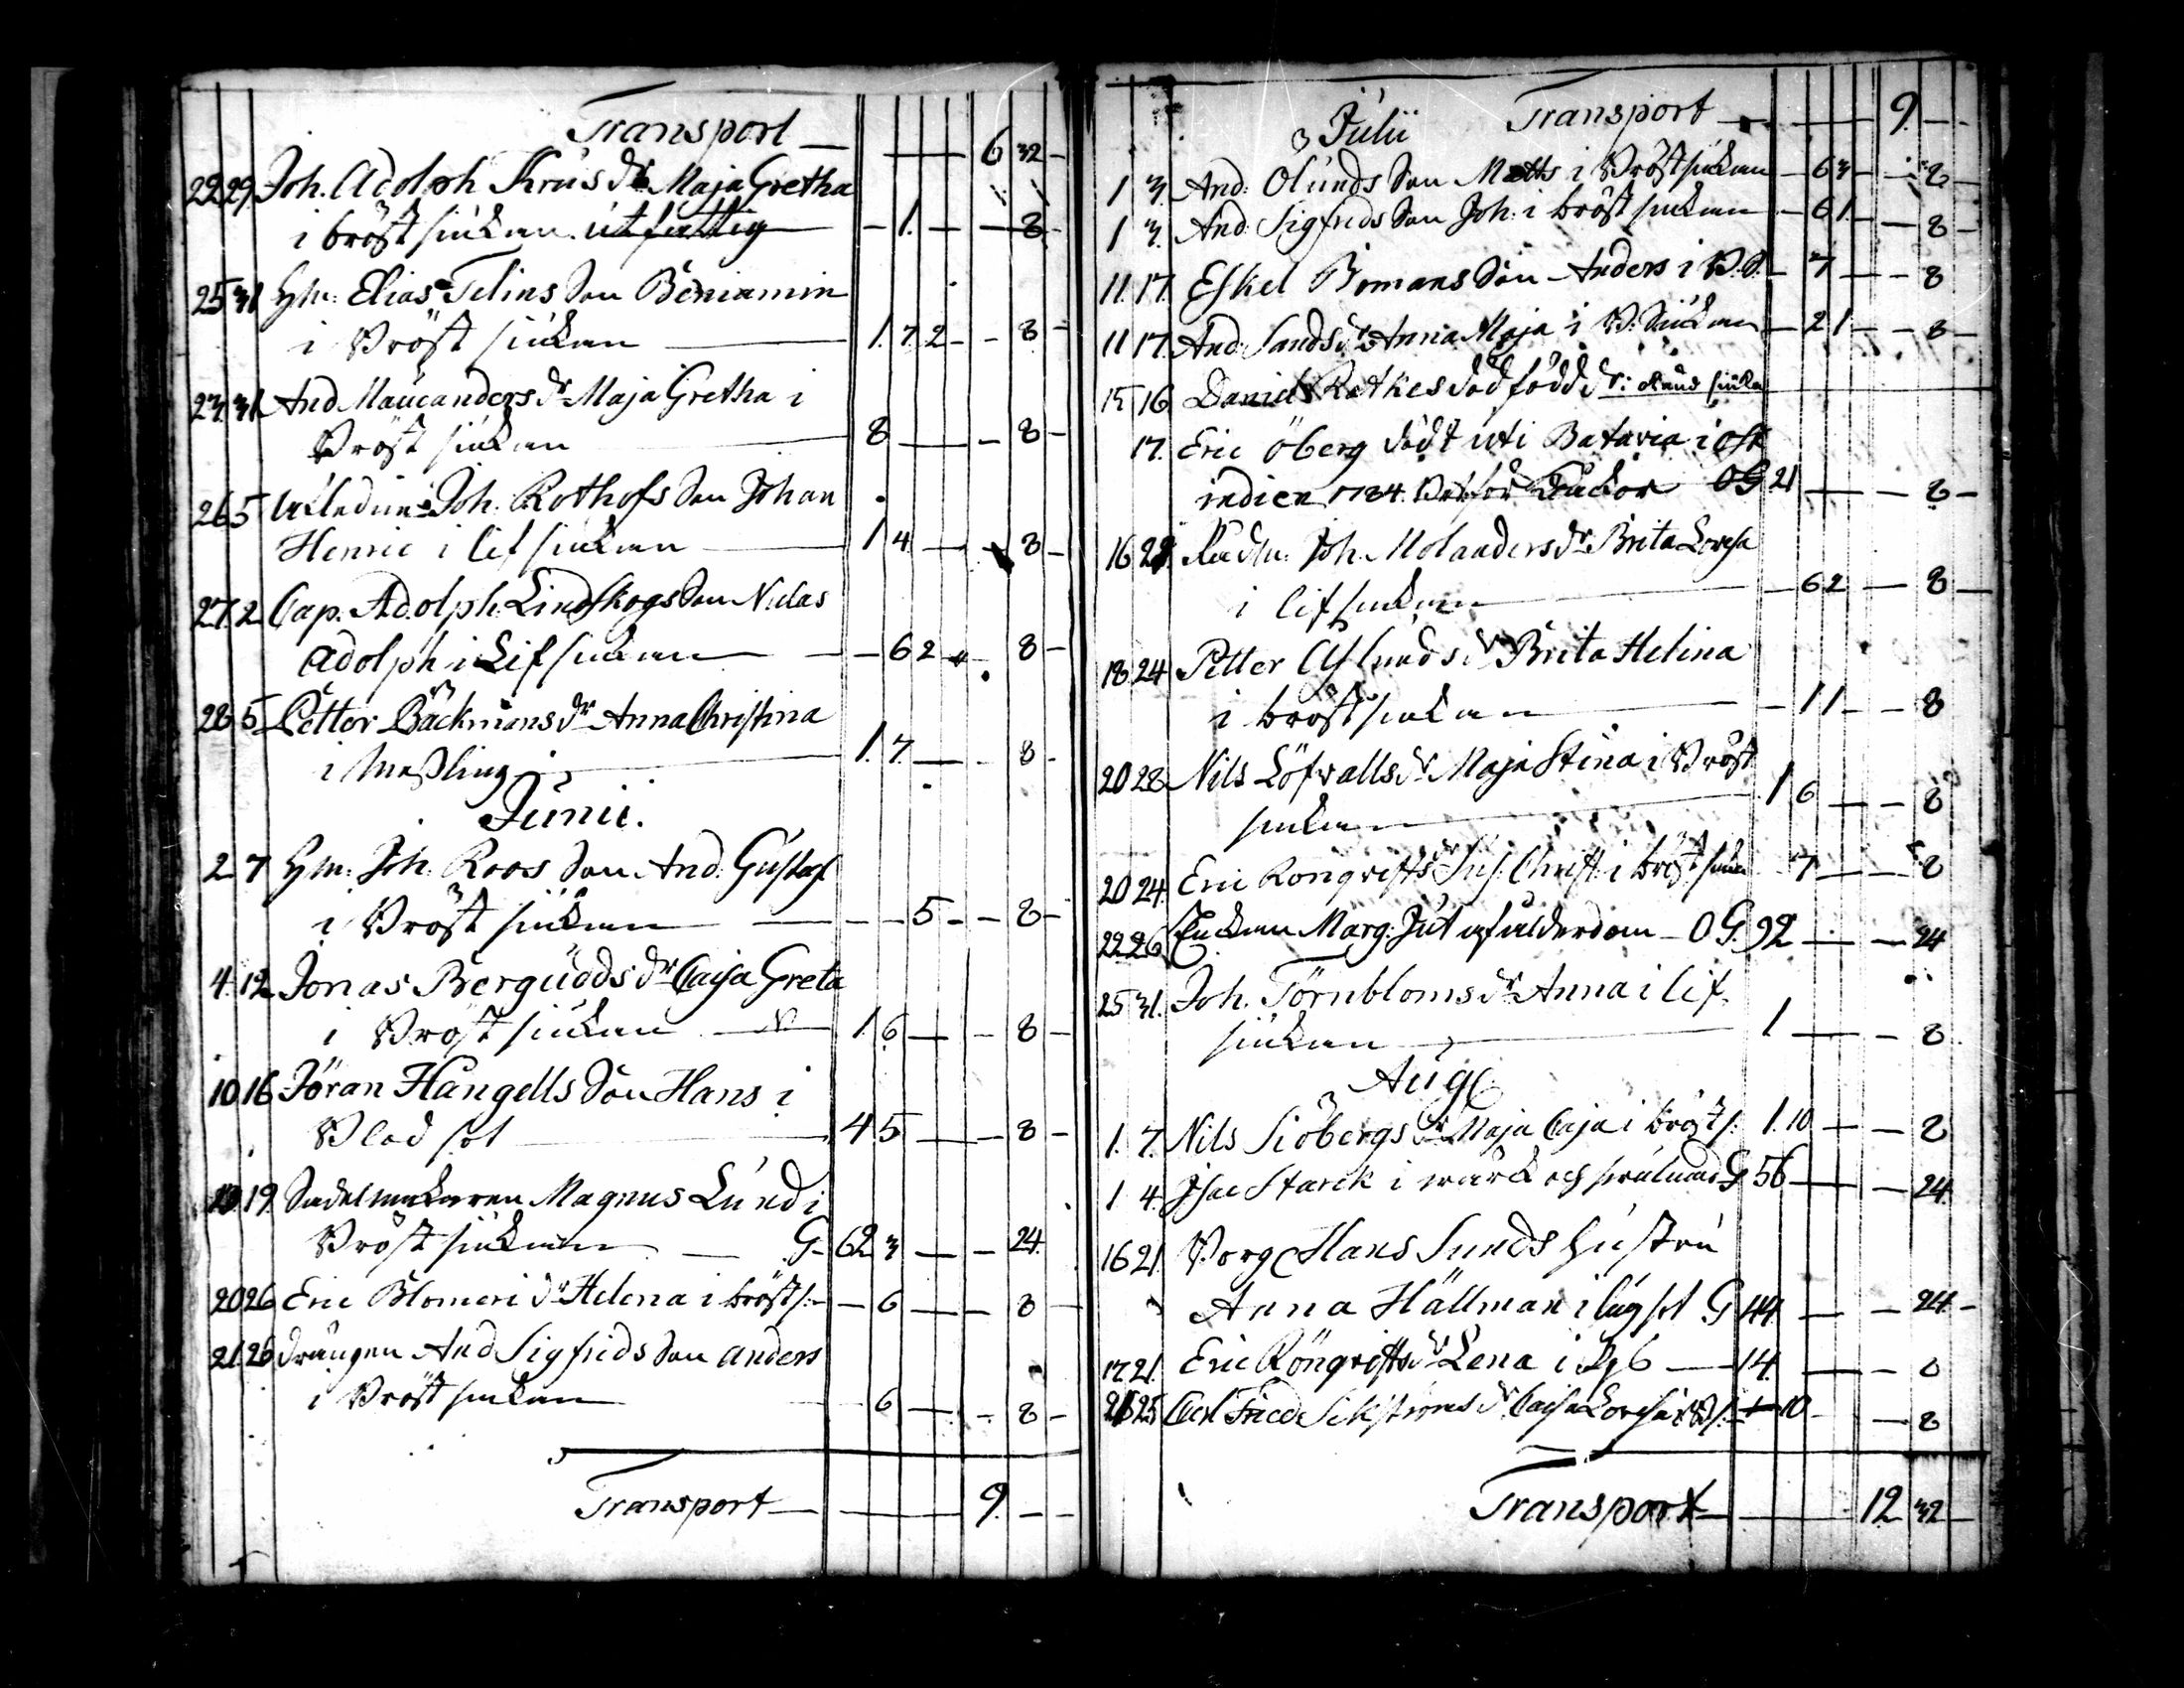 Transport — 6 32 -
22 29. Joh. Adolph Krus dr Maja Gretha
i bröst siukan utfattig - 1. — 8
25 31 Hm: Elias Telins Son Beniamin
i Bröst siukan — 1. 7 2 - - 8 -
23 31 And Maucanders dr Maja Gretha i
Bröst siukan — 8 — - 8 -
26 5 Joh. Rothofs Son Johan
Henric i lif siukan — 1 4 — - 8 -
27. 2 Cap. Adolph Lindskogs Son Niclas
Adolph i Lif siukan — - 6 2 - 8 -
28 5 Petter Bäckmans dr Anna Christina
i Messling — 1. 7. — 8 -
Junii.
2 7 Hm: Joh. Roos Son And. Gustaf
i Bröst siukan — - - 5 - - 8 -
4. 12 Jonas Bergudds dr Caisa Greta
i Bröst siukan — 1. 6 — - 8 -
10 16 Jöran Hangells Son Hans i
Blod sot — 4 5 — - 8 -
19. Sadelmakaren Magnus Lund i
Bröst siukan — G- 62 3 — - 24.
20 26 Eric Blomeri dr Helena i bröst s: - 6 — 8 -
21. 26 drängen And Sigfrids Son Anders
i Bröst siukan — 6 — - 8 -
Transport — 9. - -
Julii Transport — 9. - -
1 3. And: Ölunds Son Matts i Bröst siukan - 6 3 - - 8 -
1 3. And: Sigfrids Son Joh: i bröst siukan - 6 1 - - 8 -
11. 17. Eskel Bomans Son Anders i B.S. - 7 - - 8
11 17. And: Sands dr Anna Maja i B: Siukan - 2 1 - - 8 -
15 16 Daniel Rothes död född dr:
17. Eric Öberg död uti Batavia i Ost
indien 1784. OG 21 — - 8 -
16 Rådm: Joh. Molanders dr Brita Lovisa
i lif siukan — - 6 2 — 8 -
18 24 Petter Aslunds dr Brita Helina
i bröst siukan — - 1 1 - - 8
20 28 Nils Löfvalls dr Maja Stina i Bröst
siukan — 1 6 — - 8
20 24. Eric Rönqvists dr Sus. Christ: i bröst siukan 7 — - 8
22 26 Enckan Marg: Jut af ålderdom - O G. 92 — - 24
25 31. Joh. Törnbloms dr Anna i lif
siukan — 1 — - 8
Aug
1. 7. Nils Siöbergs dr Maja Caja i bröst s: 1. 10 — - 8
1 4. Isac Starck i wärck och G 56 — - 24
16 21. Borg Hans Sunds Hustru
Anna Hällman i lugsot G 44 — - 24. -
17 21. Eric Rönqvists dr Lena i — 14. — - 8
25 Carl Fried Sekströms dr Caisa Lovisa i B s: 10 - - 8
Transport — 12 32 -